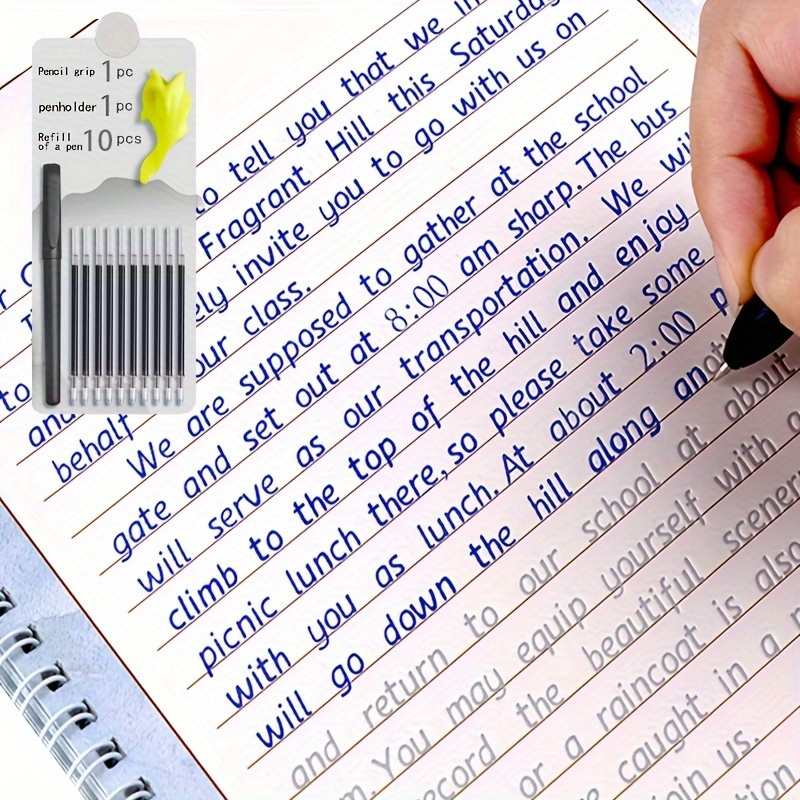 Pencil grip 1 pc
penholder 1 pc
Refill of a pen 10 pcs
to tell you that we
Fragrant Hill this Saturday
invite you to go with us on
behalf our class.
We are supposed to gather at the school
gate and set out at 8:00 am sharp. The bus
will serve as our transportation. We
climb to the top of the hill and enjoy
picnic lunch there, so please take some
with you as lunch. At about 2:00
will go down the hill along
and return to our school at about
You may equip yourself with a
the beautiful
or a raincoat is also
caught in a
us.